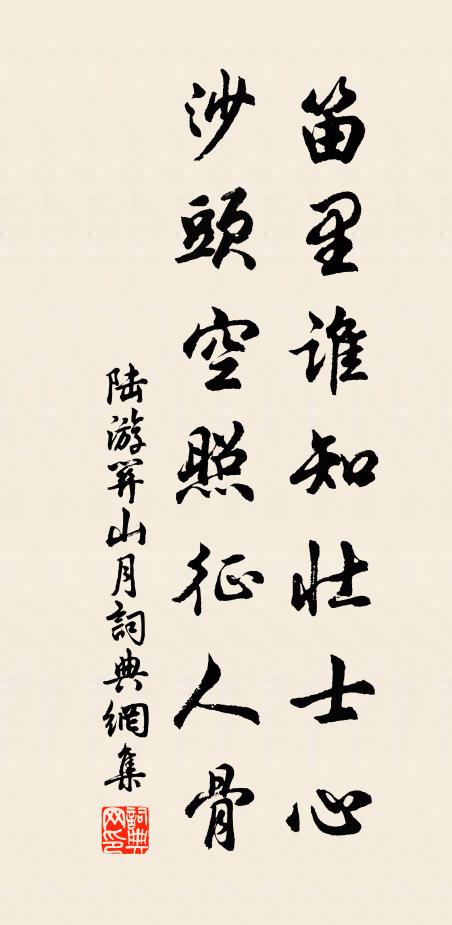 笛里谁知壮士心
沙頭空照征人骨
陆游关山月詞典網集
詞典网印